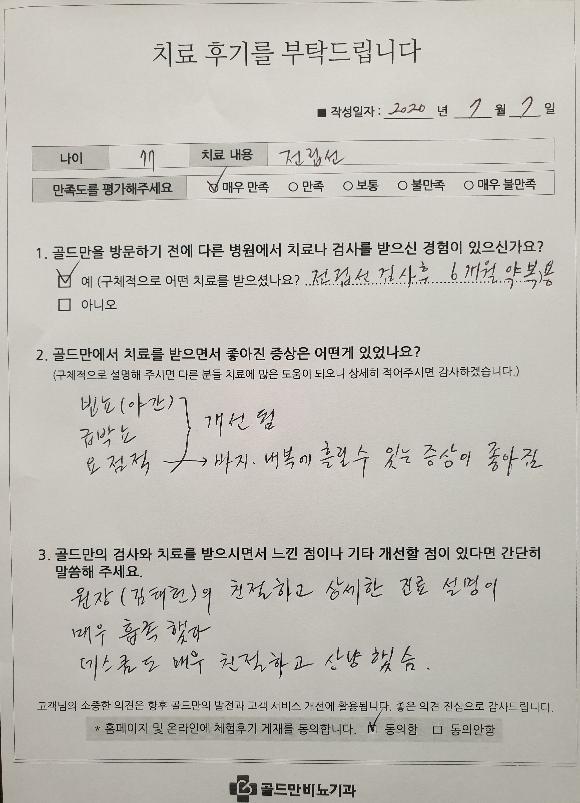 치료 후기를 부탁드립니다
■ 작성일자 : 2020 년 7 월 7 일
나이 77 치료 내용 전립선
만족도를 평가해주세요 ☑ 매우 만족 ○ 만족 ○ 보통 ○ 불만족 ○ 매우 불만족
1. 골드만을 방문하기 전에 다른 병원에서 치료나 검사를 받으신 경험이 있으신가요?
☑ 예 (구체적으로 어떤 치료를 받으셨나요? 전립선 검사후 6개월 약복용
□ 아니오
2. 골드만에서 치료를 받으면서 좋아진 증상은 어떤게 있었나요?
(구체적으로 설명해 주시면 다른 분들 치료에 많은 도움이 되오니 상세히 적어주시면 감사하겠습니다.)
빈뇨(야간)
급박뇨 } 개선 됨
요점적 → 바지·내복에 흘릴 수 있는 증상이 좋아짐
3. 골드만의 검사와 치료를 받으시면서 느낀 점이나 기타 개선할 점이 있다면 간단히
말씀해 주세요.
원장(김태헌)의 친절하고 상세한 진료 설명이
매우 흡족 했다
데스크도 매우 친절하고 상냥 했슴.
고객님의 소중한 의견은 향후 골드만의 발전과 고객 서비스 개선에 활용됩니다. 좋은 의견 진심으로 감사드립니다.
* 홈페이지 및 온라인에 체험후기 게재를 동의합니다. ☑ 동의함 □ 동의안함
골드만비뇨기과